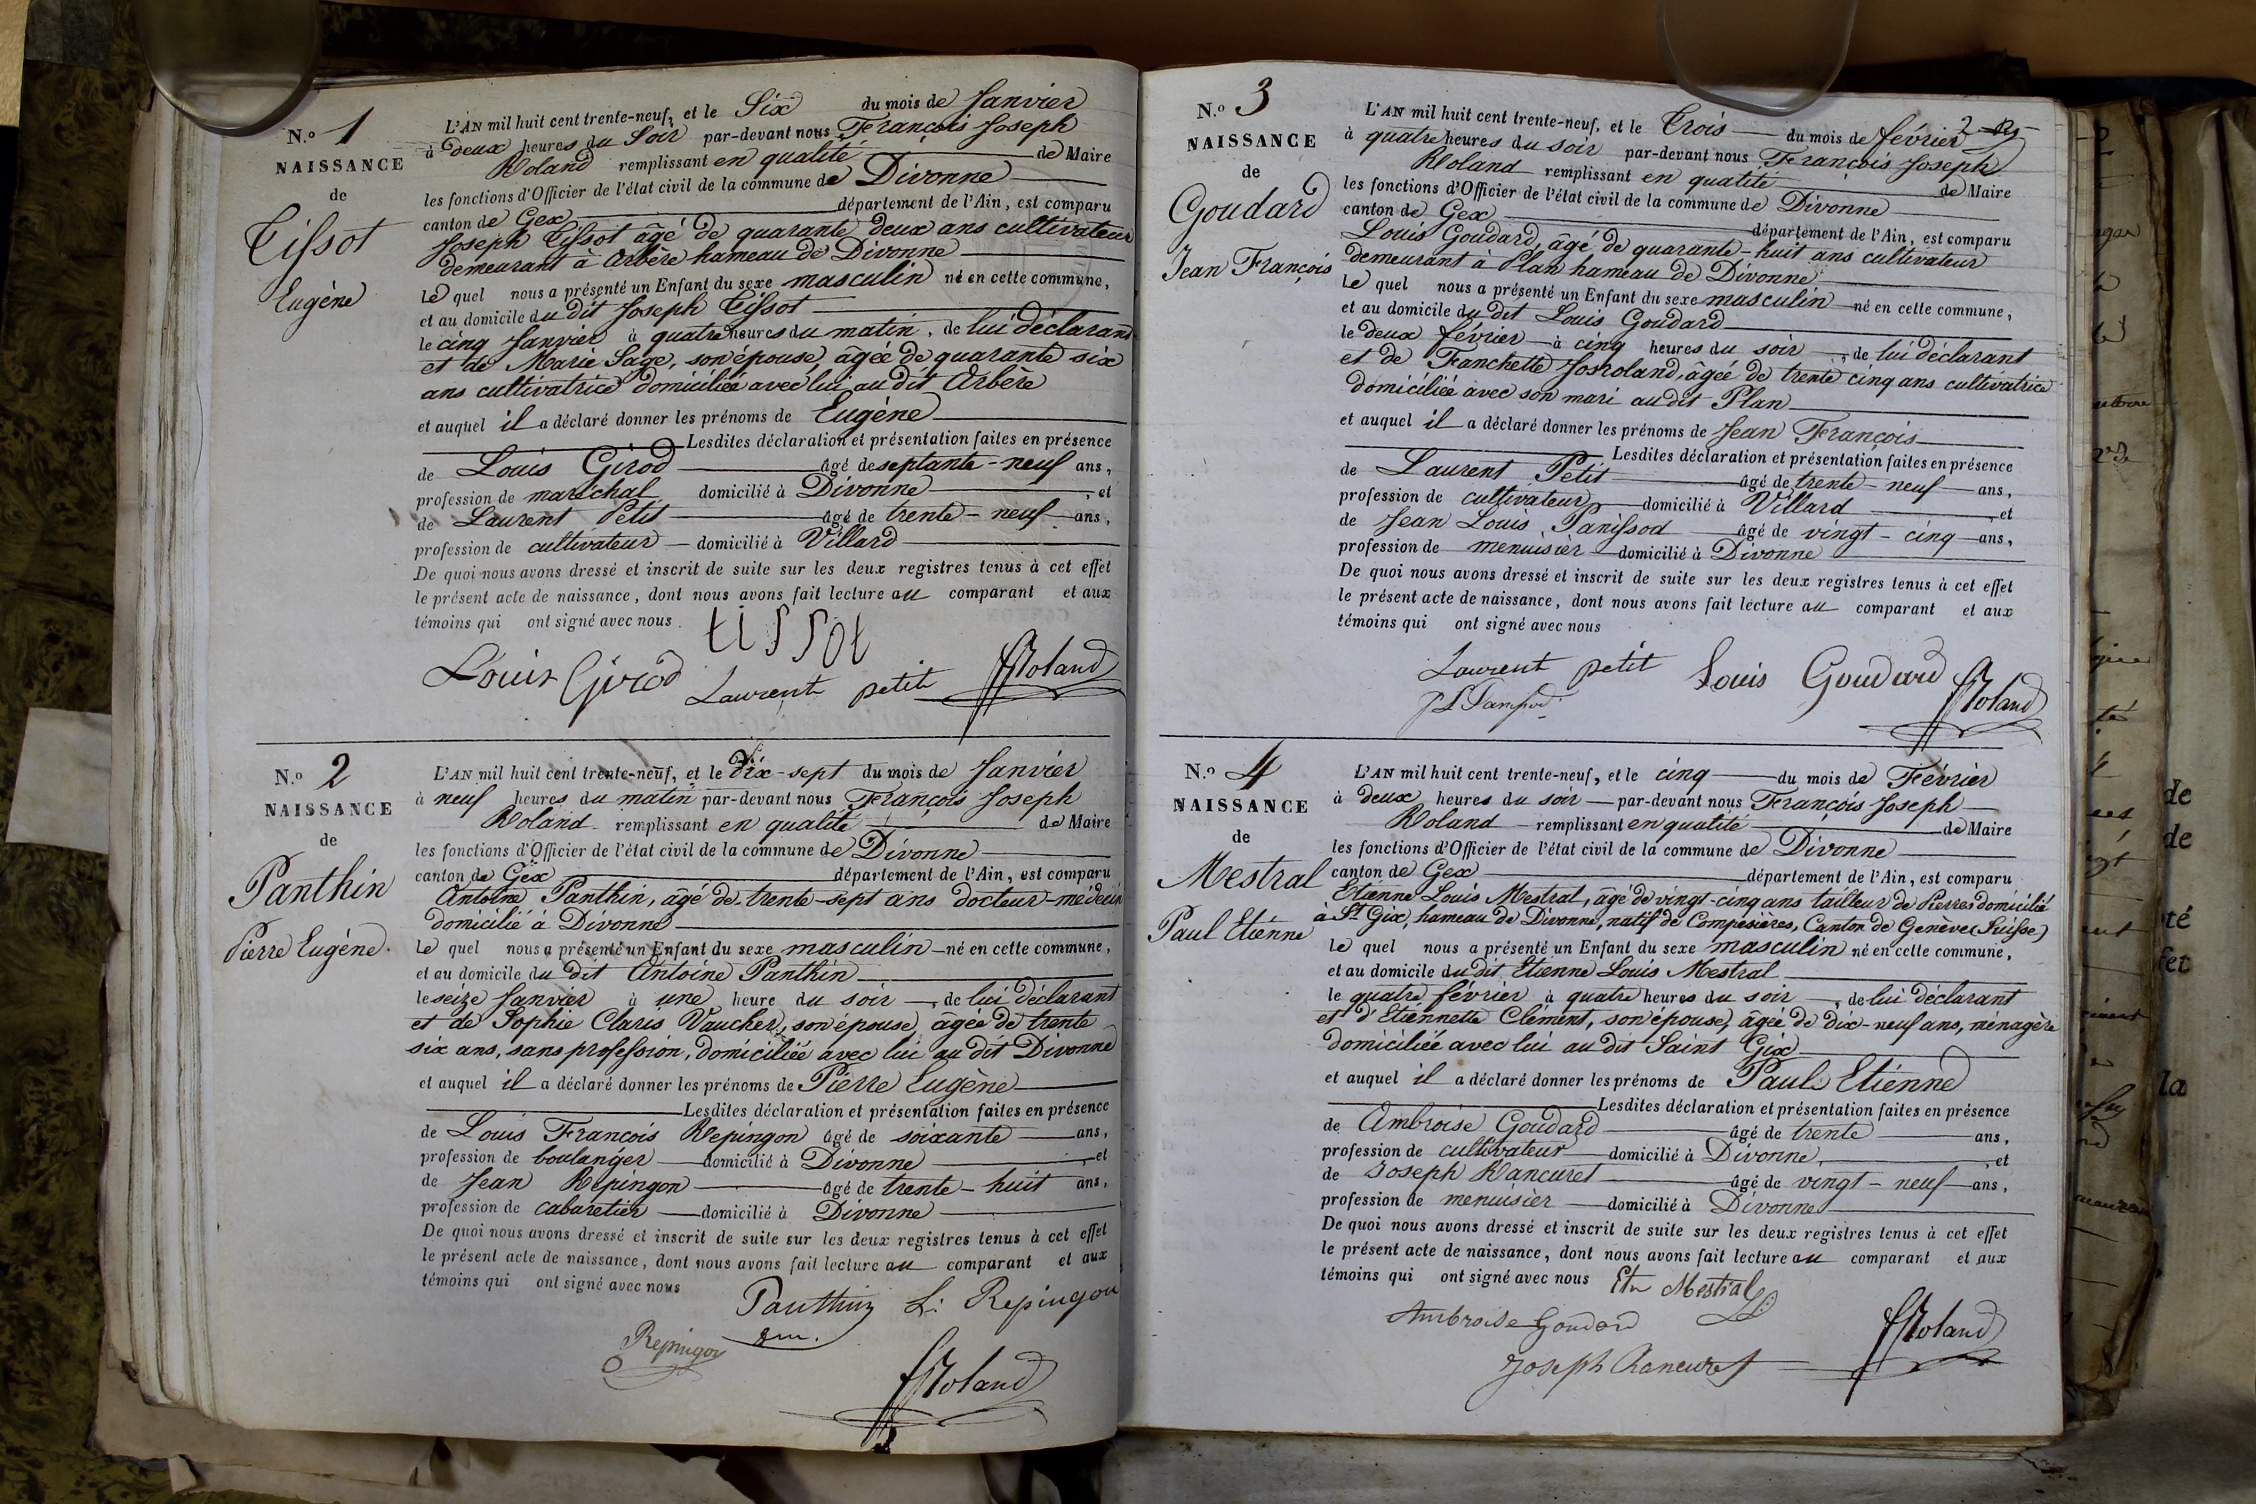 N.o 1
NAISSANCE
de
Tissot
Eugène
L'AN mil huit cent trente-neuf, et le Six du mois de Janvier
à deux heures du Soir par-devant nous François Joseph
Roland remplissant en qualité de Maire
les fonctions d'Officier de l'état civil de la commune de Divonne
canton de Gex département de l'Ain, est comparu
Joseph Tissot âgé de quarante deux ans cultivateur
demeurant à Arbère hameau de Divonne
Le quel nous a présenté un Enfant du sexe masculin né en cette commune,
et au domicile du dit Joseph Tissot
le cinq Janvier à quatre heures du matin, de lui déclarant
et de Marie Sage, son épouse, âgée de quarante six
ans cultivatrice domiciliée avec lui au dit Arbère
et auquel il a déclaré donner les prénoms de Eugène
Lesdites déclaration et présentation faites en présence
de Louis Girod âgé de septante-neuf ans,
profession de maréchal domicilié à Divonne, et
de Laurent Petit âgé de trente-neuf ans,
profession de cultivateur domicilié à Villard
De quoi nous avons dressé et inscrit de suite sur les deux registres tenus à cet effet
le présent acte de naissance, dont nous avons fait lecture au comparant et aux
témoins qui ont signé avec nous.
tissot
Louis Girod Laurent petit Roland
N.o 2
NAISSANCE
de
Panthin
Pierre Eugène.
L'AN mil huit cent trente-neuf, et le dix-sept du mois de Janvier
à neuf heures du matin par-devant nous François Joseph
Roland remplissant en qualité de Maire
les fonctions d'Officier de l'état civil de la commune de Divonne
canton de Gex département de l'Ain, est comparu
Antoine Panthin, âgé de trente-sept ans docteur-médecin
domicilié à Divonne
Le quel nous a présenté un Enfant du sexe masculin né en cette commune,
et au domicile du dit Antoine Panthin
le seize Janvier à une heure du soir, de lui déclarant
et de Sophie Claris Vaucher, son épouse, âgée de trente
six ans, sans profession, domiciliée avec lui au dit Divonne
et auquel il a déclaré donner les prénoms de Pierre Eugène
Lesdites déclaration et présentation faites en présence
de Louis François Repingon âgé de soixante ans,
profession de boulanger domicilié à Divonne, et
de Jean Repingon âgé de trente-huit ans,
profession de cabaretier domicilié à Divonne
De quoi nous avons dressé et inscrit de suite sur les deux registres tenus à cet effet
le présent acte de naissance, dont nous avons fait lecture au comparant et aux
témoins qui ont signé avec nous
Panthin L. Repingon
Repingon
Roland
N.o 3
NAISSANCE
de
Goudard
Jean François
L'AN mil huit cent trente-neuf, et le Trois du mois de février
à quatre heures du soir par-devant nous François Joseph
Roland remplissant en qualité de Maire
les fonctions d'Officier de l'état civil de la commune de Divonne
canton de Gex département de l'Ain, est comparu
Louis Goudard, âgé de quarante-huit ans cultivateur
demeurant à Plan hameau de Divonne
Le quel nous a présenté un Enfant du sexe masculin né en cette commune,
et au domicile du dit Louis Goudard
le deux février à cinq heures du soir, de lui déclarant
et de Franchette Josroland, âgée de trente cinq ans cultivatrice
domiciliée avec son mari au dit Plan
et auquel il a déclaré donner les prénoms de Jean François
Lesdites déclaration et présentation faites en présence
de Laurent Petit âgé de trente-neuf ans,
profession de cultivateur domicilié à Villard, et
de Jean Louis Panissod âgé de vingt-cinq ans,
profession de menuisier domicilié à Divonne
De quoi nous avons dressé et inscrit de suite sur les deux registres tenus à cet effet
le présent acte de naissance, dont nous avons fait lecture au comparant et aux
témoins qui ont signé avec nous
Laurent petit Louis Goudard
Roland
N.o 4
NAISSANCE
de
Mestral
Paul Etienne
L'AN mil huit cent trente-neuf, et le cinq du mois de Février
à deux heures du soir par-devant nous François Joseph
Roland remplissant en qualité de Maire
les fonctions d'Officier de l'état civil de la commune de Divonne
canton de Gex département de l'Ain, est comparu
Etienne Louis Mestral, âgé de vingt-cinq ans tailleur de Pierres domicilié
à St Gix, hameau de Divonne, natif de Compésières, Canton de Genève (Suisse)
Le quel nous a présenté un Enfant du sexe masculin né en cette commune,
et au domicile du dit Etienne Louis Mestral
le quatre février à quatre heures du soir, de lui déclarant
et d'Etiennette Clément, son épouse, âgée de dix-neuf ans, ménagère
domiciliée avec lui au dit Saint Gix
et auquel il a déclaré donner les prénoms de Paul Etienne
Lesdites déclaration et présentation faites en présence
de Ambroise Goudard âgé de trente ans,
profession de cultivateur domicilié à Divonne, et
de Joseph Rancuret âgé de vingt-neuf ans,
profession de menuisier domicilié à Divonne
De quoi nous avons dressé et inscrit de suite sur les deux registres tenus à cet effet
le présent acte de naissance, dont nous avons fait lecture au comparant et aux
témoins qui ont signé avec nous Etn Mestral
Ambroise Goudard Roland
Joseph Rancuret
de
de
té
fet
la